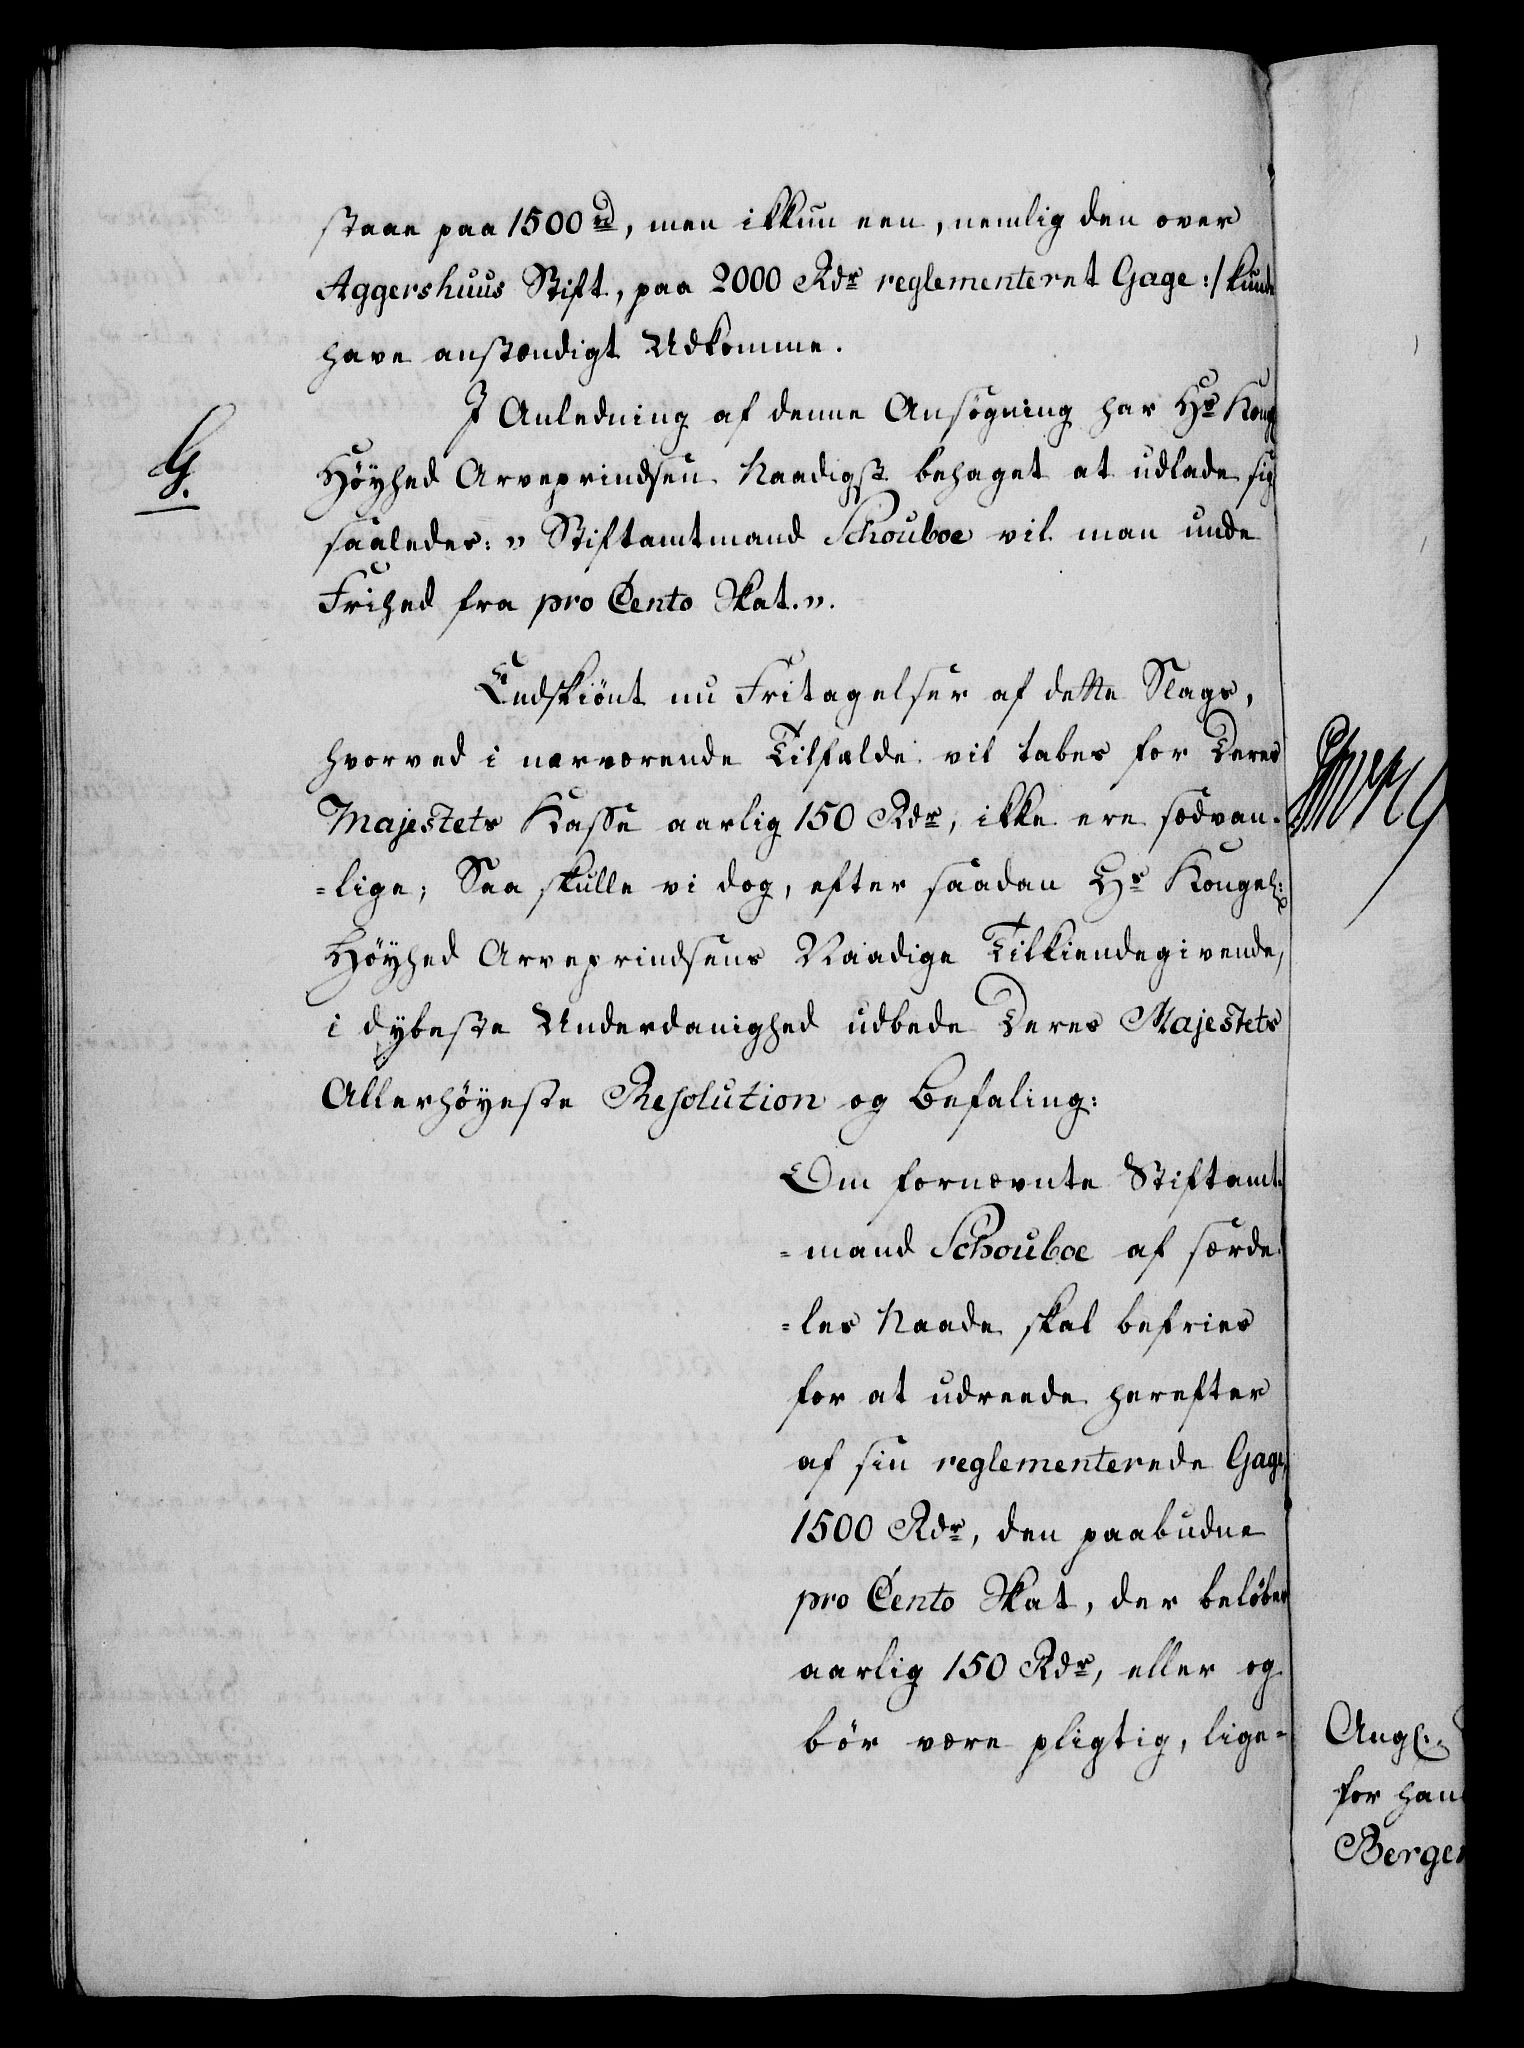 staae paa 1500 rd, men ikkun een, nemlig den over
Aggershuus Stift, paa 2000 Rdr reglementeret Gage :/ kunde
have anstændigt Udkomme.
I Anledning af denne Ansøgning har Hs Kongl
G.
Høyhed Arveprindsen Naadigst behaget at udlade sig
saaledes: " Stiftamtmand Schouboe vil man unde
Frihed fra pro Cento Skat.".
Endskiönt nu Fritagelser af dette Slags,
hvorved i nærværende Tilfælde vil tabes for Deres
Majestets Kasse aarlig 150 Rdr, ikke ere sædvan-
=lige; Saa skulle vi dog, efter saadan Hs Kongel:
Høyhed Arveprindsens Naadige Tilkiendegivende,
i dybeste Underdanighed udbede Deres Majestets
Allerhøyeste Resolution og Befaling:
Om fornævnte Stiftamt-
=mand Schouboe af særde-
=les Naade skal befries
for at udreede herefter
af sin reglementerede Gage,
1500 Rdr, den paabudne
pro Cento Skat, der beløber
aarlig 150 Rdr, eller og
bör være pligtig, lige-
for ham
Bergen